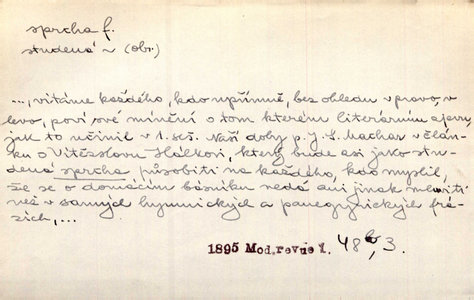 sprcha f.
studená ~ (obr.)
..., vítáme každého, kdo upřímně, bez ohledu vpravo, v
levo, poví své mínění o tom kterém literárním zjevu,
jak to učinil v 1. seš. Naší doby p. J. S. Machar v člán-
ku o Vítězslavu Hálkovi, který bude asi jako stu-
dená sprcha působiti na každého, kdo myslil,
že se o domácím básníku nedá ani jinak mluviti
než v samých hymnických a panegyrických frá-
zích, ...
1895 Mod. revue 1. 48b, 3.